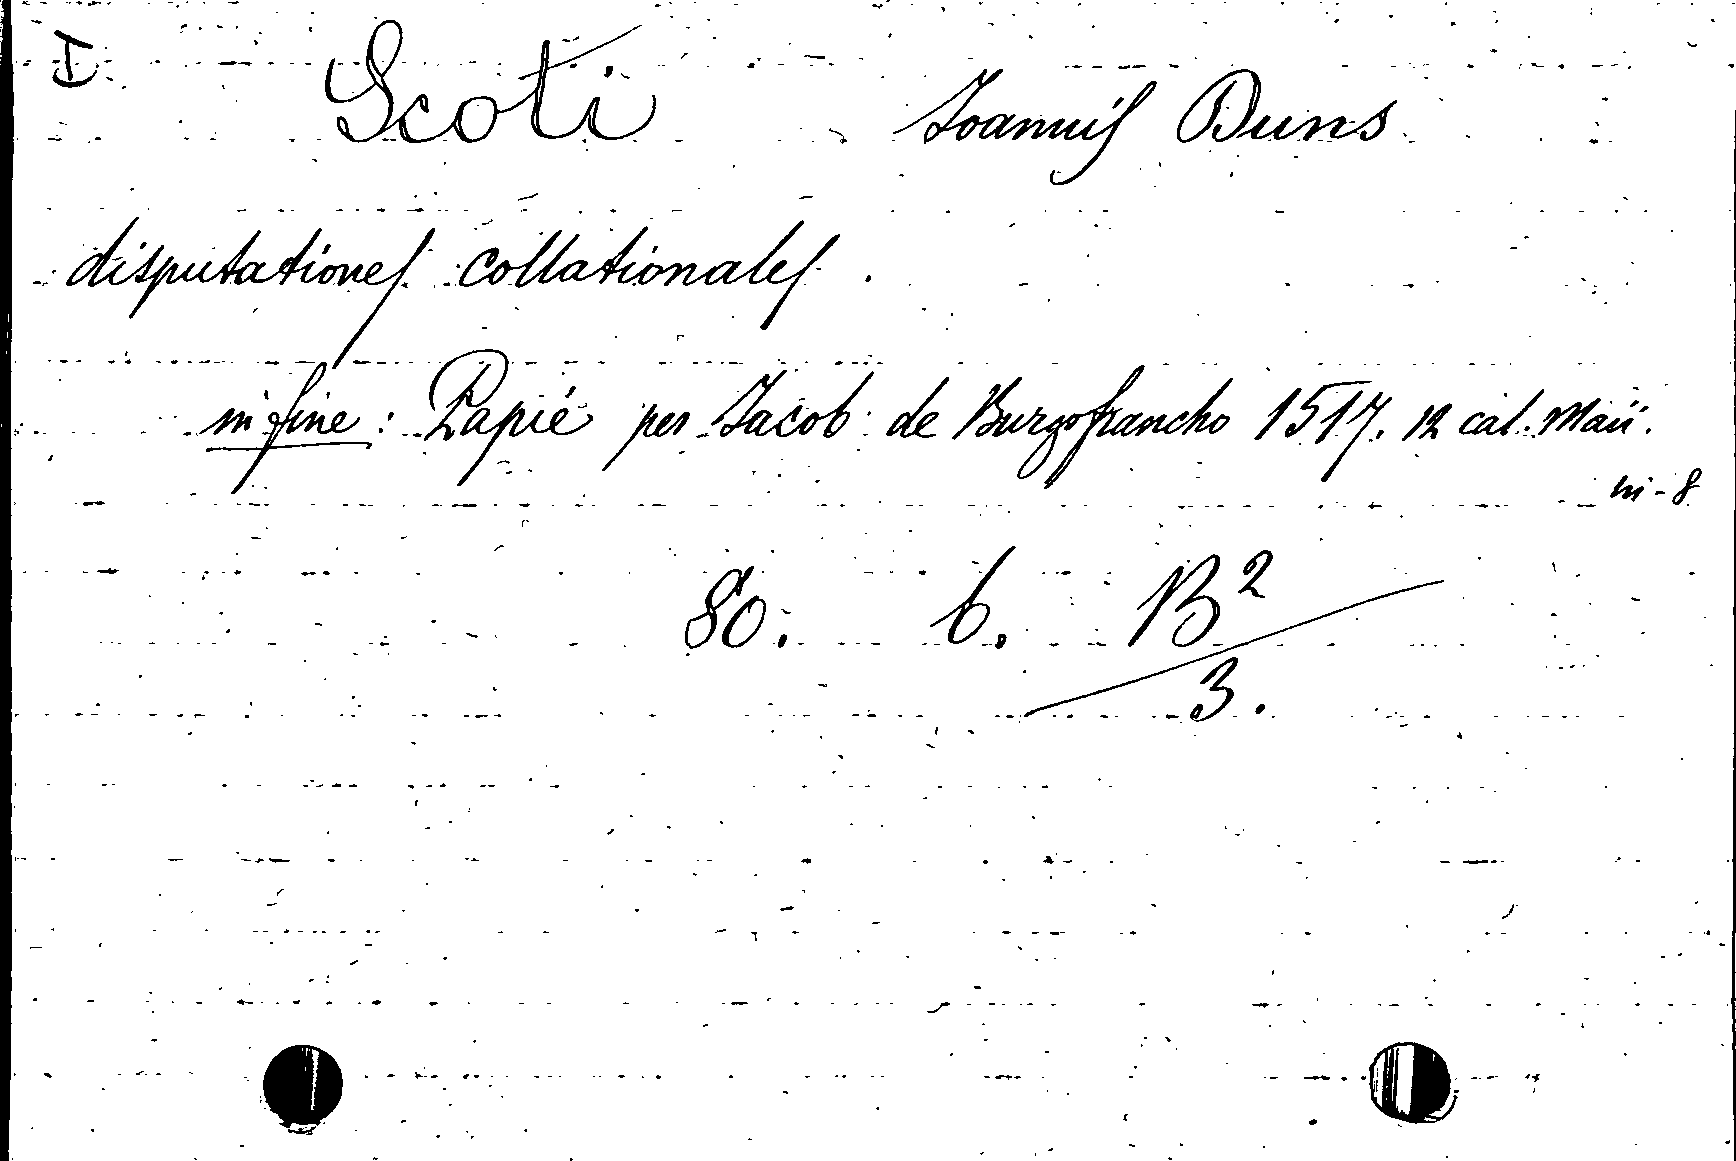 I Scoti Joannis Duns
disputationes collationales.
in fine: Papie per Jacob de Burgofrancho 1517. 12 cal. Maii.
in-8
80. b. B²
3.